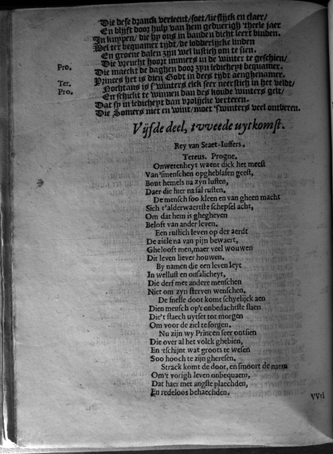 Die dese dranck verleent/ soet/ lieflijck en claer/
En blijft door hulp van hem geduerigh theele jaer
In kuypen/ die hy ons in banden dicht leert binden.
Wel ter bequamer tijdt, de lodderlijcke linden
En groene dalen zijn wel lustich om te sien.
Die vrucht hoort immers in de winter te geschien/
Pro. Die maeckt de daghen door zijn ledicheyt bequamer.
Ter. Princes het is dien Godt in dees tijdt aenghenamer.
Pro. Nochtans is 's winters sich seer neerstich in het veldt/
En schickt te winnen dan des koude winters gelt/
Dat sy in ledicheyt dan vrolijcke verteren.
Die Somers niet en wint/ moet 's winters veel ontberen.
Vijfde deel, tweede uytkomst.
Rey van Staet-Iuffers.
Tereus. Progne.
Onwetenheyt waent dick het meest
Van 'smenschen opgheblasen geest,
Bout hemels na zyn lusten,
Daer die hier na sal rusten.
De mensch soo kleen en van gheen macht
Sich t'alderwaertste schepsel acht,
Om dat hem is ghegheven
Beloft van ander leven.
Een rustlich leven op der aerdt
De ziele na van pijn bewaert,
Ghelooft men, maer veel wouwen
Dit leven liever houwen.
By namen die een leven leyt
In wellust en
Die derf met andere menschen
Niet om zyn sterven wenschen.
De snelle doot komt schyelijck aen
Dien mensch op't onbedachtste staen
Die't staech uytset tot morgen
Om voor de ziel te sorgen.
Nu zijn wy Princen seer ontsien
Die over al het volck ghebien,
En 'tschijnt wat groots te wesen
Soo hooch te zijn gheresen.
Strack komt de doot, en smoort de
Om't vorigh leven onbequaem,
Dat haer met angste plaechden,
En redeloos behaechden.